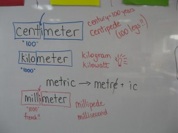 centimeter
"100"
century = 100 years
Centipede
(100 legs)
kilometer
"1000"
kilogram
kilowatt
metric → metre + ic
millimeter
"1000"
millipede
millisecond